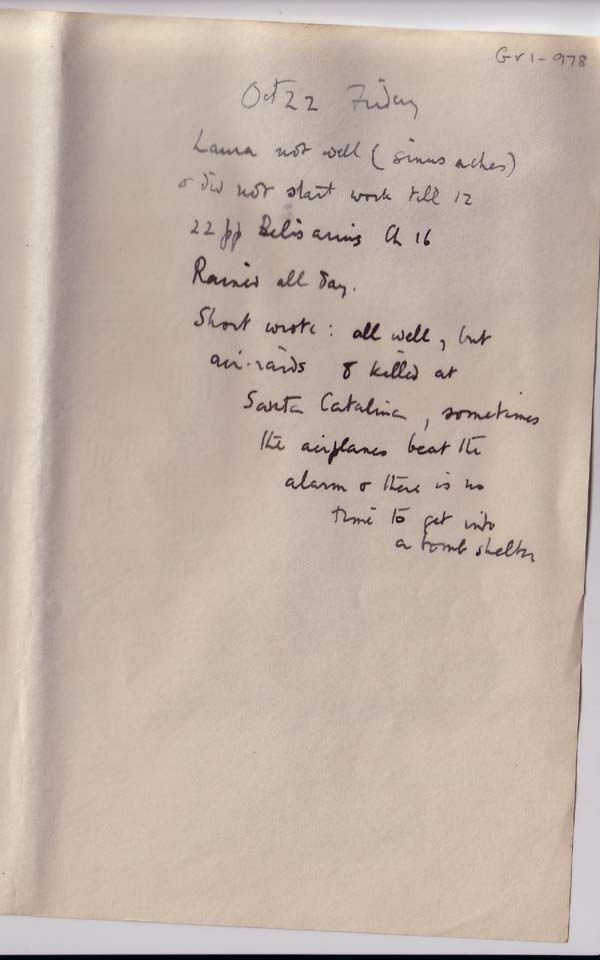 Gr1-978
Oct 22 Friday
Laura not well (sinus aches)
& did not start work till 12
22 pp Belisarius Ch 16
Rained all day.
Short wrote: all well, but
air-raids 8 killed at
Santa Catalina, sometimes
the airplanes beat the
alarm & there is no
time to get into
a bomb shelter